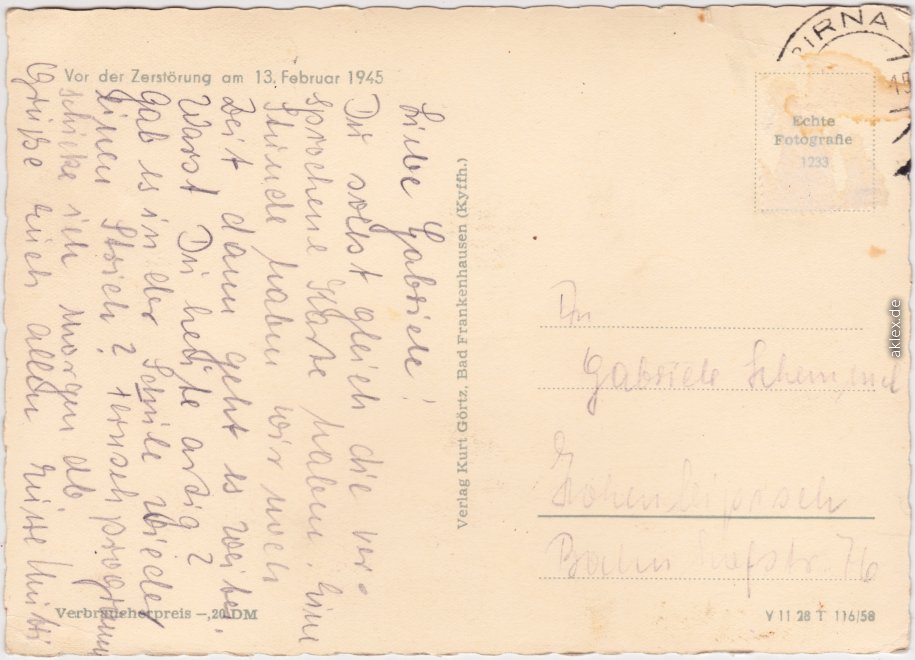 Vor der Zerstörung am 13. Februar 1945
Liebe Gabriele!
Du sollst gleich die ver-
sprochene Karte haben. Eine
Stunde haben wir noch
Zeit dann geht es weiter.
Warst Du heute artig?
Gab es in der Schule wieder
einen Strich? Fernsehprogramm
schicke ich morgen ab
Grüße Euch allen Eure Mutti
Verbraucherpreis -,20 DM
Verlag Kurt Görtz, Bad Frankenhausen (Kyffh.)
PIRNA
Echte
Fotografie
1233
An
Gabriele
Hohenleipisch
Bahnhofstr. 76
V 11 28 T 116/58
aklex.de